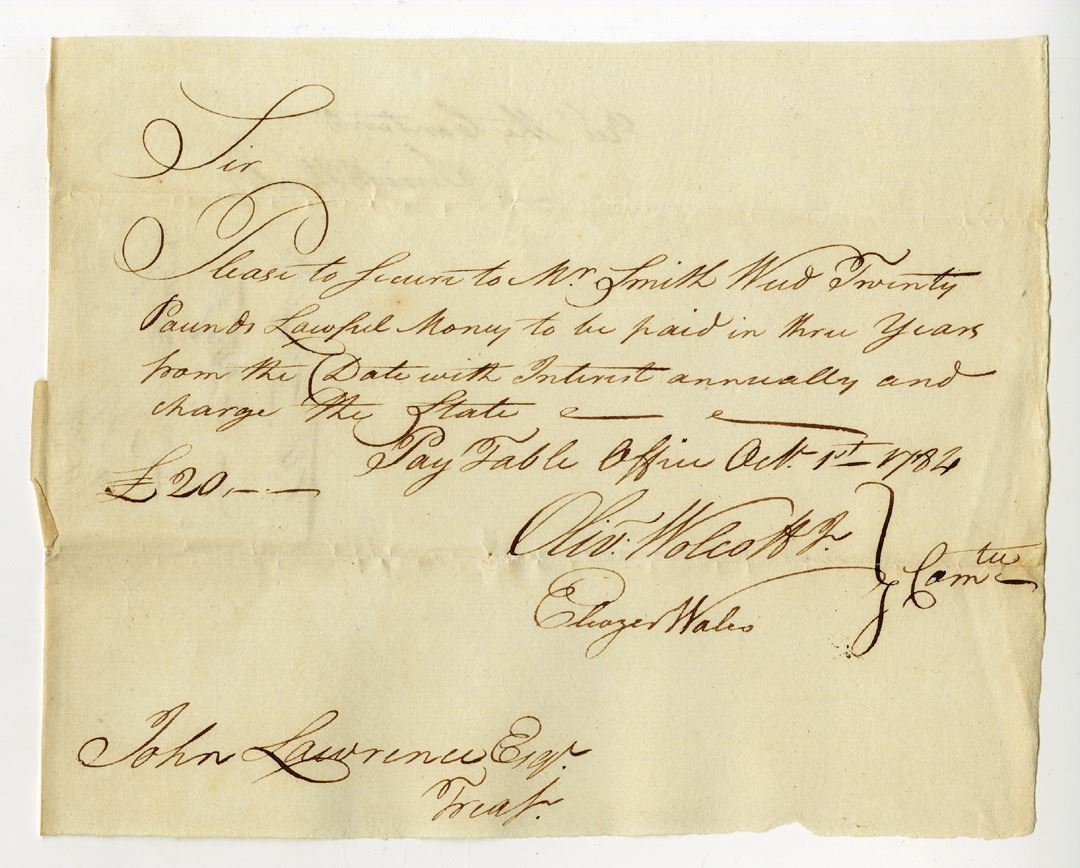 Sir
Please to Secure to Mr. Smith Weed Twenty
Pounds Lawful Money to be paid in three Years
from the Date with Interest annually and
charge the State
Pay Table Office Octr. 1st 1784
£20,--
Olivr. Wolcott Jr.
Eleazer Wales
} Comtee
John Lawrence Esqr.
Treasr.